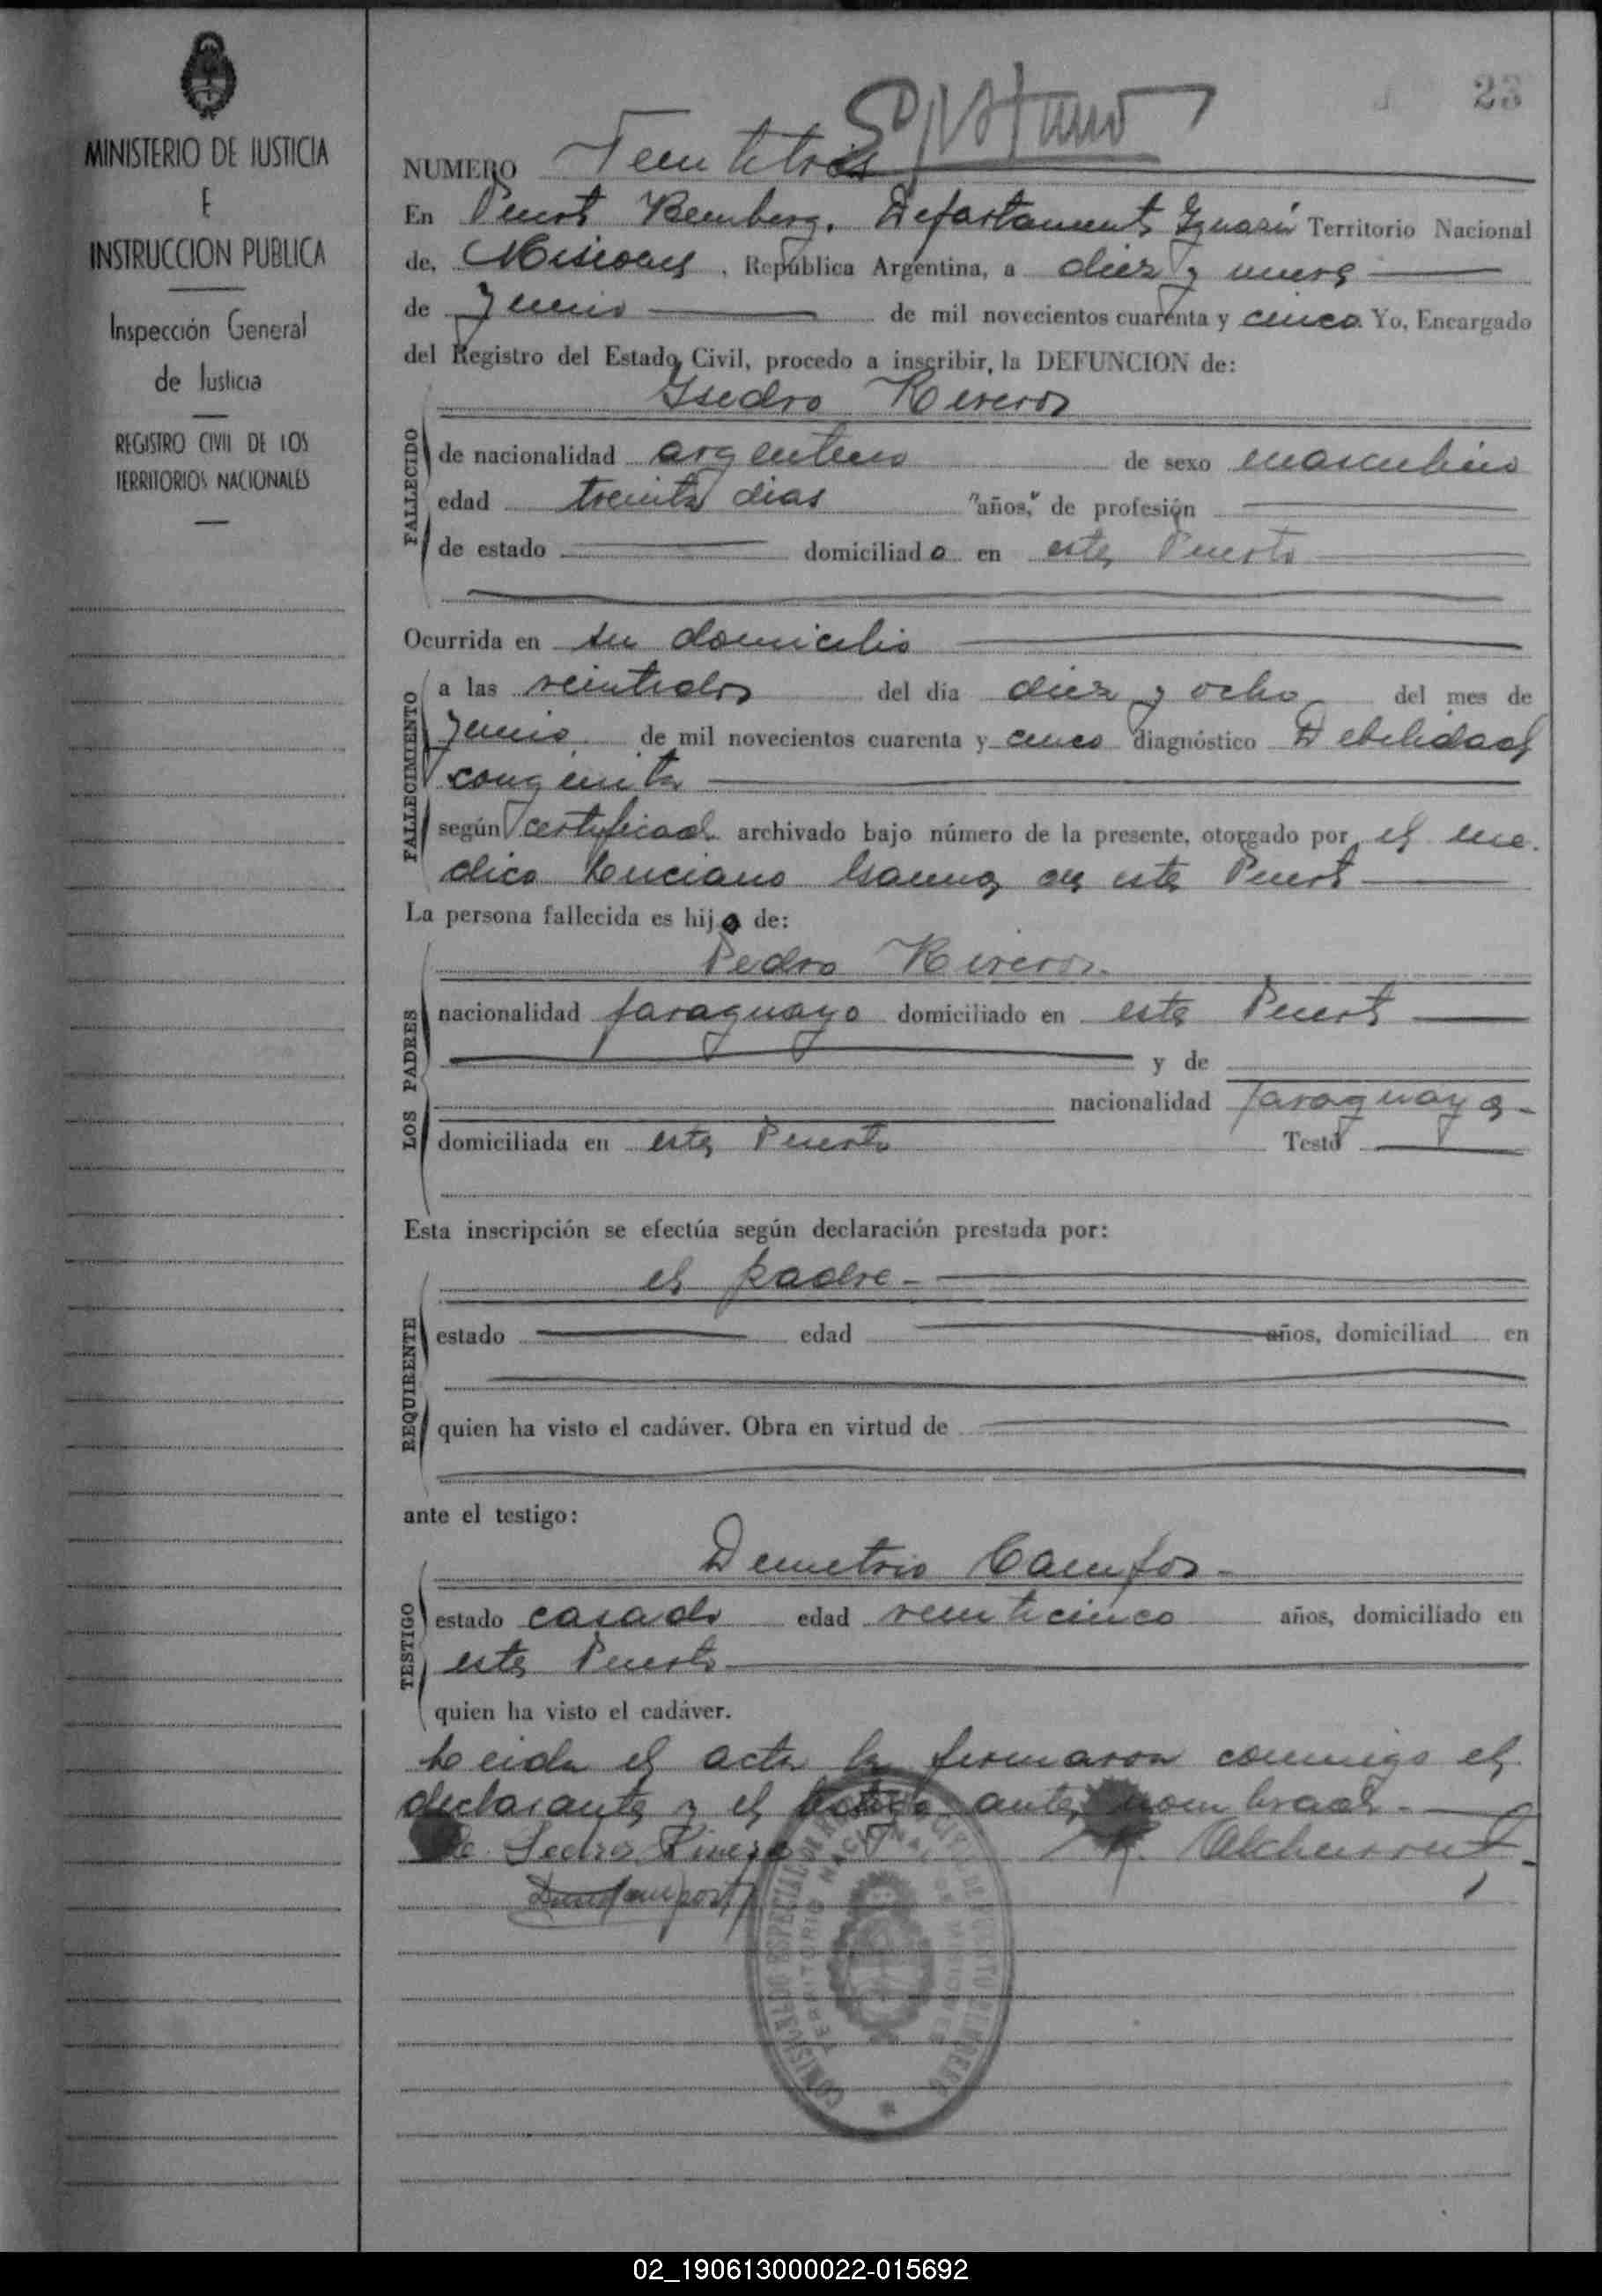 23
MINISTERIO DE JUSTICIA
E
INSTRUCCION PUBLICA
Inspección General
de Justicia
REGISTRO CIVIL DE LOS
TERRITORIOS NACIONALES
NUMERO Veintitrés
En Puerto Bemberg, Departamento Iguazú Territorio Nacional
de, Misiones, República Argentina, a diez y nueve
de Junio de mil novecientos cuarenta y cinco Yo, Encargado
del Registro del Estado Civil, procedo a inscribir, la DEFUNCION de:
Isidro Riveros
FALLECIDO
de nacionalidad argentino de sexo masculino
edad treinta dias "años," de profesión
de estado domiciliado en este Puerto
Ocurrida en su domicilio
FALLECIMIENTO
a las veintidos del día diez y ocho del mes de
Junio de mil novecientos cuarenta y cinco diagnóstico Debilidad
congenita
según certificado archivado bajo número de la presente, otorgado por el me-
dico Luciano de este Puerto
La persona fallecida es hijo de:
Pedro Riveros.
LOS PADRES
nacionalidad paraguayo domiciliado en este Puerto
y de
nacionalidad paraguaya-
domiciliada en este Puerto Testó
Esta inscripción se efectúa según declaración prestada por:
el padre-
REQUIRENTE
estado edad años, domiciliad en
quien ha visto el cadáver. Obra en virtud de
ante el testigo:
Demetrio Campos-
TESTIGO
estado casado edad veinticinco años, domiciliado en
este Puerto
quien ha visto el cadáver.
Leida el acta la firmaron conmigo el
declarante y el testigo antes nombrado.-
Pedro Rivero
TERRITORIO NACIONAL DE MISIONES
02_190613000022-015692